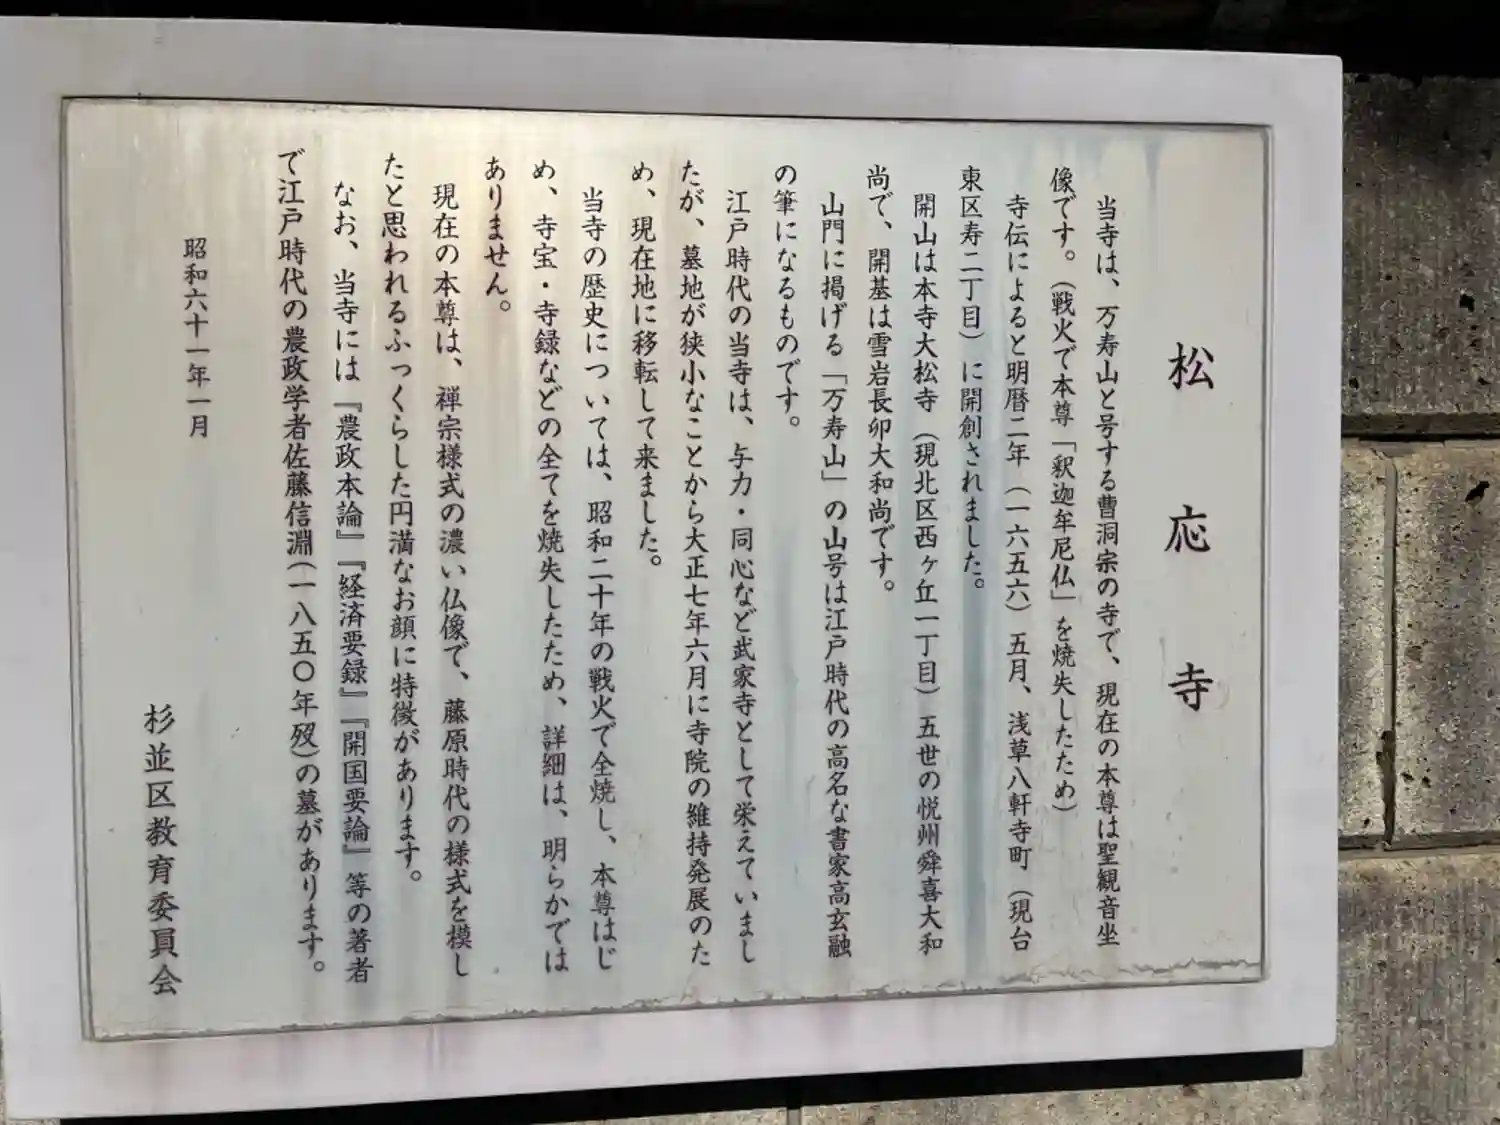 松応寺
当寺は、万寿山と号する曹洞宗の寺で、現在の本尊は聖観音坐
像です。（戦火で本尊「釈迦牟尼仏」を焼失したため）
寺伝によると明暦二年（一六五六）五月、浅草八軒寺町（現台
東区寿二丁目）に開創されました。
開山は本寺大松寺（現北区西ヶ丘一丁目）五世の悦州舜喜大和
尚で、開基は雪岩長卯大和尚です。
山門に掲げる「万寿山」の山号は江戸時代の高名な書家高玄融
の筆になるものです。
江戸時代の当寺は、与力・同心など武家寺として栄えていまし
たが、墓地が狭小なことから大正七年六月に寺院の維持発展のた
め、現在地に移転して来ました。
当寺の歴史については、昭和二十年の戦火で全焼し、本尊はじ
め、寺宝・寺録などの全てを焼失したため、詳細は、明らかでは
ありません。
現在の本尊は、禅宗様式の濃い仏像で、藤原時代の様式を模し
たと思われるふっくらした円満なお顔に特徴があります。
なお、当寺には『農政本論』『経済要録』『開国要論』等の著者
で江戸時代の農政学者佐藤信淵（一八五〇年歿）の墓があります。
昭和六十一年一月
杉並区教育委員会